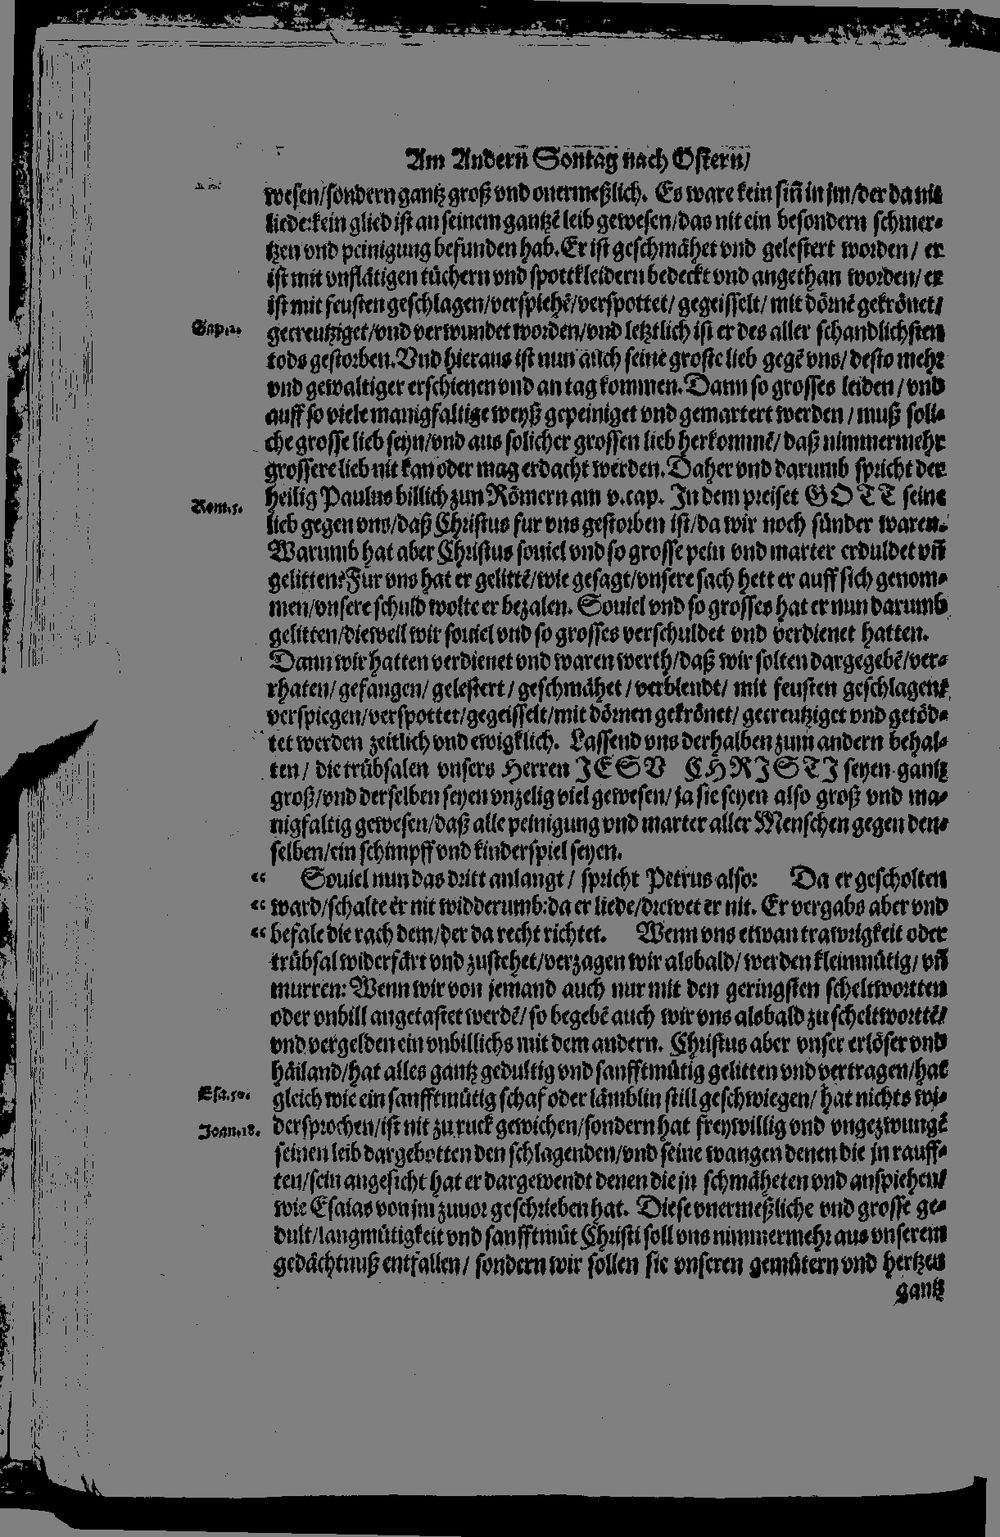 Am Andern Sontag nach Ostern/
wesen/sondern gantz groß vnd vnermeßlich. Es ware kein siñ in jm/der da nit
liede:kein glied ist an seinem gantzē leib gewesen/das nit ein besondern schmer-
tzen vnd peinigung befunden hab. Er ist geschmähet vnd gelestert worden/ er
ist mit vnflätigen tüchern vnd spottkleidern bedeckt vnd angethan worden/ er
ist mit feusten geschlagen/verspiehē/verspottet/ gegeisselt/ mit dörnē gekrönet/
Sap.2.
gecreutziget/vnd verwundet worden/vnd letztlich ist er des aller schandlichsten
tods gestorben. Vnd hieraus ist nun auch seine groste lieb gegē vns/ desto mehr
vnd gewaltiger erschienen vnd an tag kommen. Dann so grosses leiden/ vnd
auff so viele manigfaltige weyß gepeiniget vnd gemartert werden/ muß soli-
che grosse lieb seyn/vnd aus solicher grossen lieb herkommē/ daß nimmermehr
grossere lieb nit kan oder mag erdacht werden. Daher vnd darumb spricht der
Rom.5.
heilig Paulus billich zun Römern am v. cap. In dem preiset GOTT seine
lieb gegen vns/daß Christus fur vns gestorben ist/da wir noch sünder waren.
Warumb hat aber Christus souiel vnd so grosse pein vnd marter erduldet vñ
gelitten? Fur vns hat er gelittē/wie gesagt/vnsere sach hett er auff sich genom-
men/vnsere schuld wolte er bezalen. Souiel vnd so grosses hat er nun darumb
gelitten/dieweil wir souiel vnd so grosses verschuldet vnd verdienet hatten.
Dann wir hatten verdienet vnd waren werth/daß wir solten dargegebē/ver-
rhaten/ gefangen/ gelestert/ geschmähet/ verblendt/ mit feusten geschlagen/
verspiegen/verspottet/gegeisselt/mit dörnen gekrönet/ gecreutziget vnd getöd-
tet werden zeitlich vnd ewigklich. Lassend vns derhalben zum andern behal-
ten/ die trübsalen vnsers Herren JESV CHRISTI seyen gantz
groß/vnd derselben seyen vnzelig viel gewesen/ ja sie seyen also groß vnd ma-
nigfaltig gewesen/daß alle peinigung vnd marter aller Menschen gegen den-
selben/ein schimpff vnd kinderspiel seyen.
“ Souiel nun das dritt anlangt/ spricht Petrus also: Da er gescholten
“ ward/schalte er nit widderumb:da er liede/drewet er nit. Er vergabs aber vnd
“ befale die rach dem/der da recht richtet. Wenn vns etwan trawrigkeit oder
trübsal widerfärt vnd zustehet/verzagen wir alsbald/ werden kleinmütig/ vñ
murren: Wenn wir von jemand auch nur mit den geringsten scheltwortten
oder vnbill angetastet werdē/ so begebē auch wir vns alsbald zu scheltworttē/
vnd vergelden ein vnbillichs mit dem andern. Christus aber vnser erlöser vnd
häiland/hat alles gantz gedultig vnd sanfftmütig gelitten vnd vertragen/hat
Esa.50.
gleich wie ein sanfftmütig schaf oder lämblin still geschwiegen/ hat nichts wi-
Joan.18.
dersprochen/ist nit zu ruck gewichen/sondern hat freywillig vnd vngezwungē
seinen leib dargebotten den schlagenden/vnd seine wangen denen die jn rauff-
ten/sein angesicht hat er dargewendt denen die jn schmäheten vnd anspiehen/
wie Esaias von jm zuuor geschrieben hat. Diese vnermeßliche vnd grosse ge-
dult/langmütigkeit vnd sanfftmüt Christi soll vns nimmermehr aus vnserem
gedächtnuß entfallen/ sondern wir sollen sie vnseren gemütern vnd hertzen
gantz